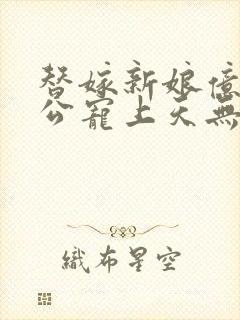 替嫁新娘億
公寵上天無
織布星空